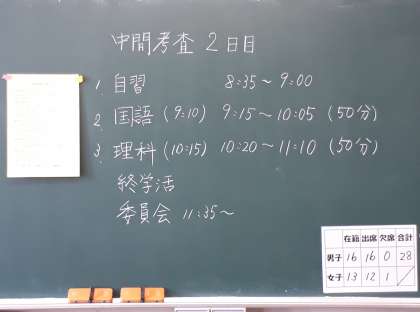 中間考査 2日目
1. 自習 8:35～9:00
2. 国語 (9:10) 9:15～10:05 (50分)
3. 理科 (10:15) 10:20～11:10 (50分)
終学活
委員会 11:35～
在籍 出席 欠席 合計
男子 16 16 0 28
女子 13 12 1